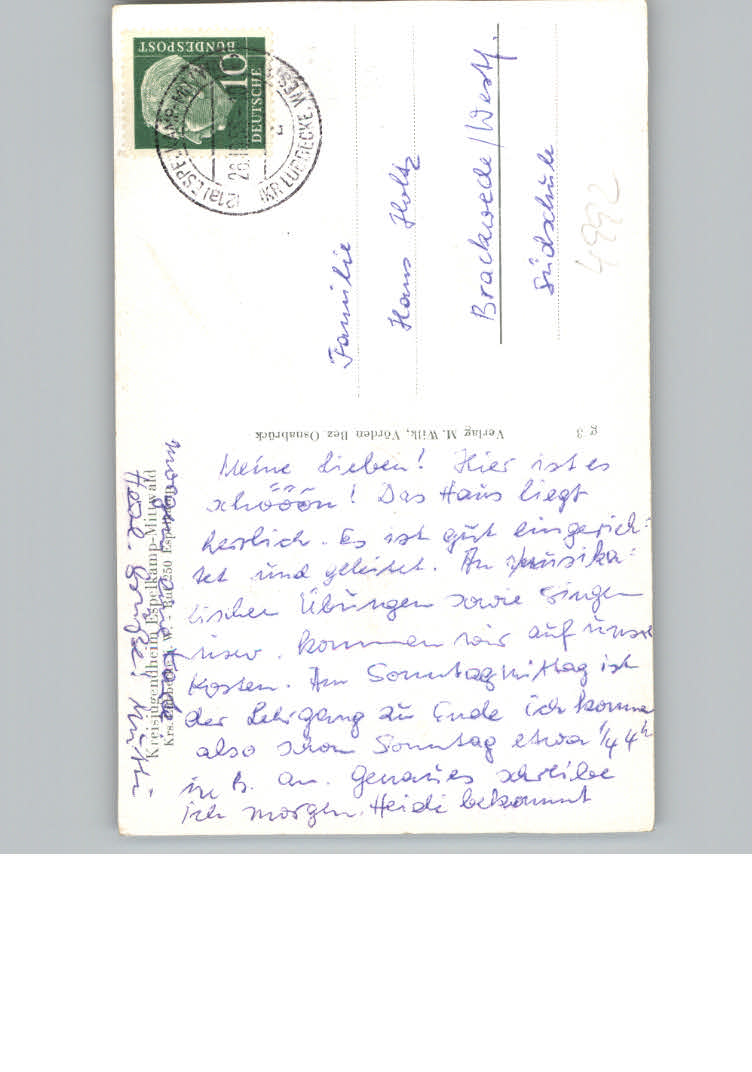 DEUTSCHE
BUNDESPOST
10
(21a) ESPELKAMP-MITTWALD
(KR LÜBBECKE, WESTF)
Familie
Hans Holtz
Brackwede/Westf.
Südschule
4992
g 3 Verlag M. Wilk, Vörden Bez. Osnabrück
Kreisjugendheim Espelkamp-Mittwald
Meine Lieben! Hier ist es
schööön! Das Haus liegt
herrlich. Es ist gut eingerich=
tet und geleitet. An musika=
lischen Übungen sowie Singen
usw. kommen wir auf unsre
Kosten. Am Sonntagmittag ist
der Lehrgang zu Ende ich komme
also schon Sonntag etwa 1/4 4h
in B. an. Genaues schreibe
ich morgen. Heidi bekommt
morgen eine Karte
Herzl. Grüße! Mutti.